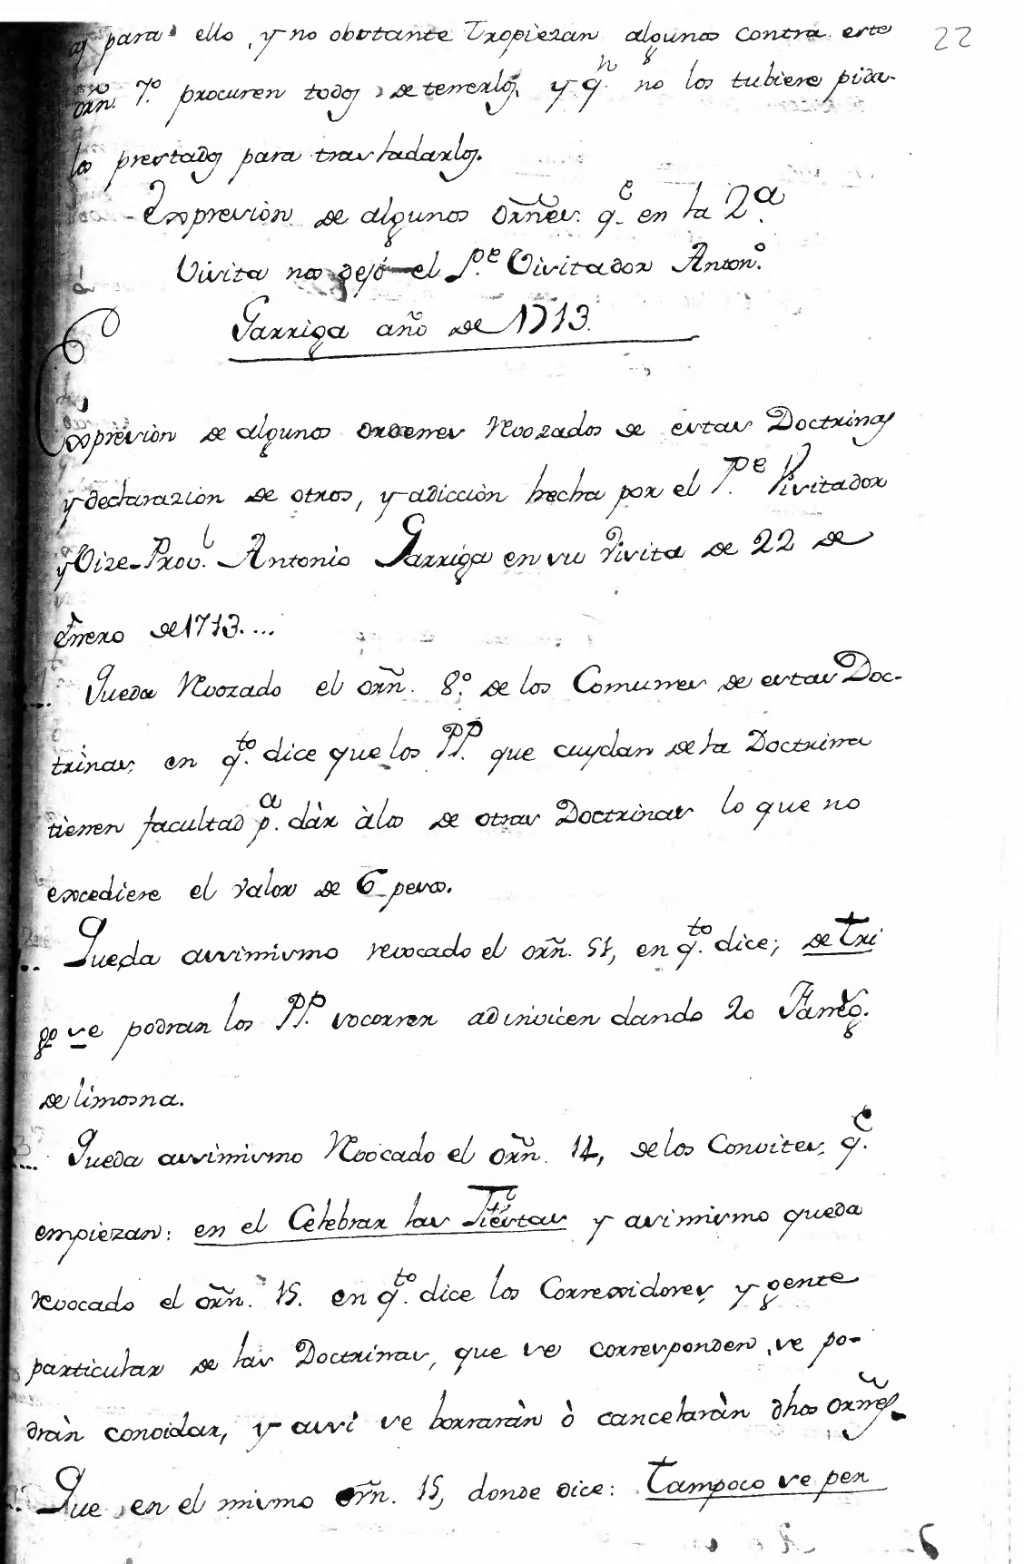 22
para ello, y no obstante tropiezan algunos contra este
orñ. 7.º procuren todos detenerlos, y q.n no los tubiere pida-
los prestados para trasladarlos.
Expresiòn de algunos orñes. q.e en la 2.a
Visita nos dejó el P.e Visitador Anton.º
Garriga año de 1713.
Expresiòn de algunos ordenes Revocados de estas Doctrinas
y declarazion de otros, y adicciòn hecha por el P.e Visitador
y Vize-Prov.l Antonio Garriga en su Visita de 22 de
Enero de 1713....
Queda Revozado el orñ. 8.º de los Comunes de estas Doc-
trinas, en q.to dice que los PP. que cuydan de la Doctrina
tienen facultad p.a dàr àlos de otras Doctrinas lo que no
excediere el valor de 6 pesos.
Queda assimismo revocado el orñ. 51, en q.to dice; de tri
go se podran los PP. socorrer adinvicen dando 20 Faneg.s
de limosna.
3 Queda assimismo Revocado el orñ. 14, delos Convites, q.e
empiezan: en el Celebrar las Fiestas y asimismo queda
revocado el orñ. 15. en q.to dice los Correxidores y gente
particular de las Doctrinas, que se corresponden, se po-
dràn convidar, y assi se borraràn ò cancelaràn dhos orñes.
Que en el mismo orñ. 15, donde dice: Tampoco se per